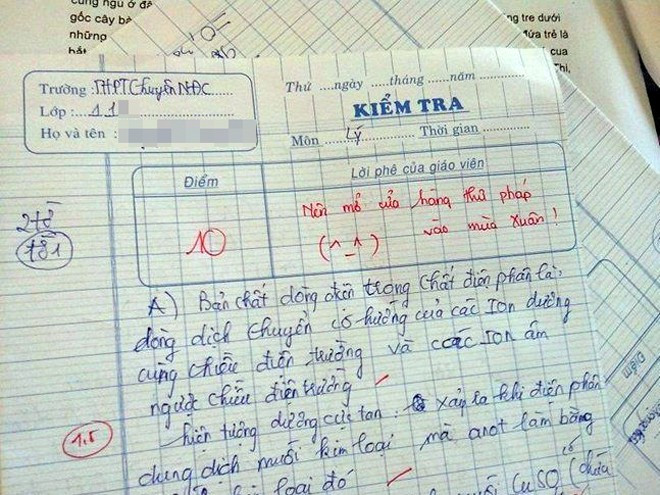 cùng ngủ ở đâ
gốc cây bà
những
ng tre dưới
đứa trẻ là
cua
Thị,
Trường : THPT Chuyên NĐC
Lớp : 11
Họ và tên :
Thứ ....ngày .......tháng .......năm ............
KIỂM TRA
Môn Lý Thời gian
Điểm
Lời phê của giáo viên
10
Nên mở cửa hàng thư pháp
vào mùa xuân !
(^_^)
2 tờ
181
A) Bản chất dòng điện trong chất điện phân là:
dòng dịch chuyển có hướng của các Ion dương
cùng chiều điện trường và các Ion âm
ngược chiều điện trường
1,5
hiện tượng dương cực tan: xảy ra khi điện phân
dung dịch muối kim loại mà anot làm bằng
loại đó
CuSO
Điểm